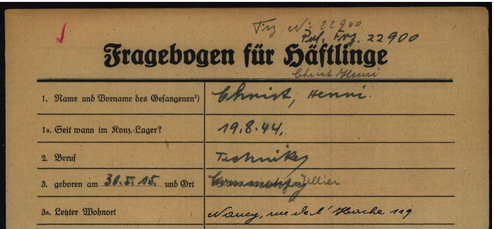 Frz Nr: 22900
Pol. Frz. 22900
Fragebogen für Häftlinge
Christ Henri
1. Name und Vorname des Gefangenen¹) Christ, Henri.
1a. Seit wann im Konz.-Lager? 19.8.44.
2. Beruf Techniker
3. geboren am 30.5.15. und Ort
3a. Letzter Wohnort Nancy, rue de l' 119